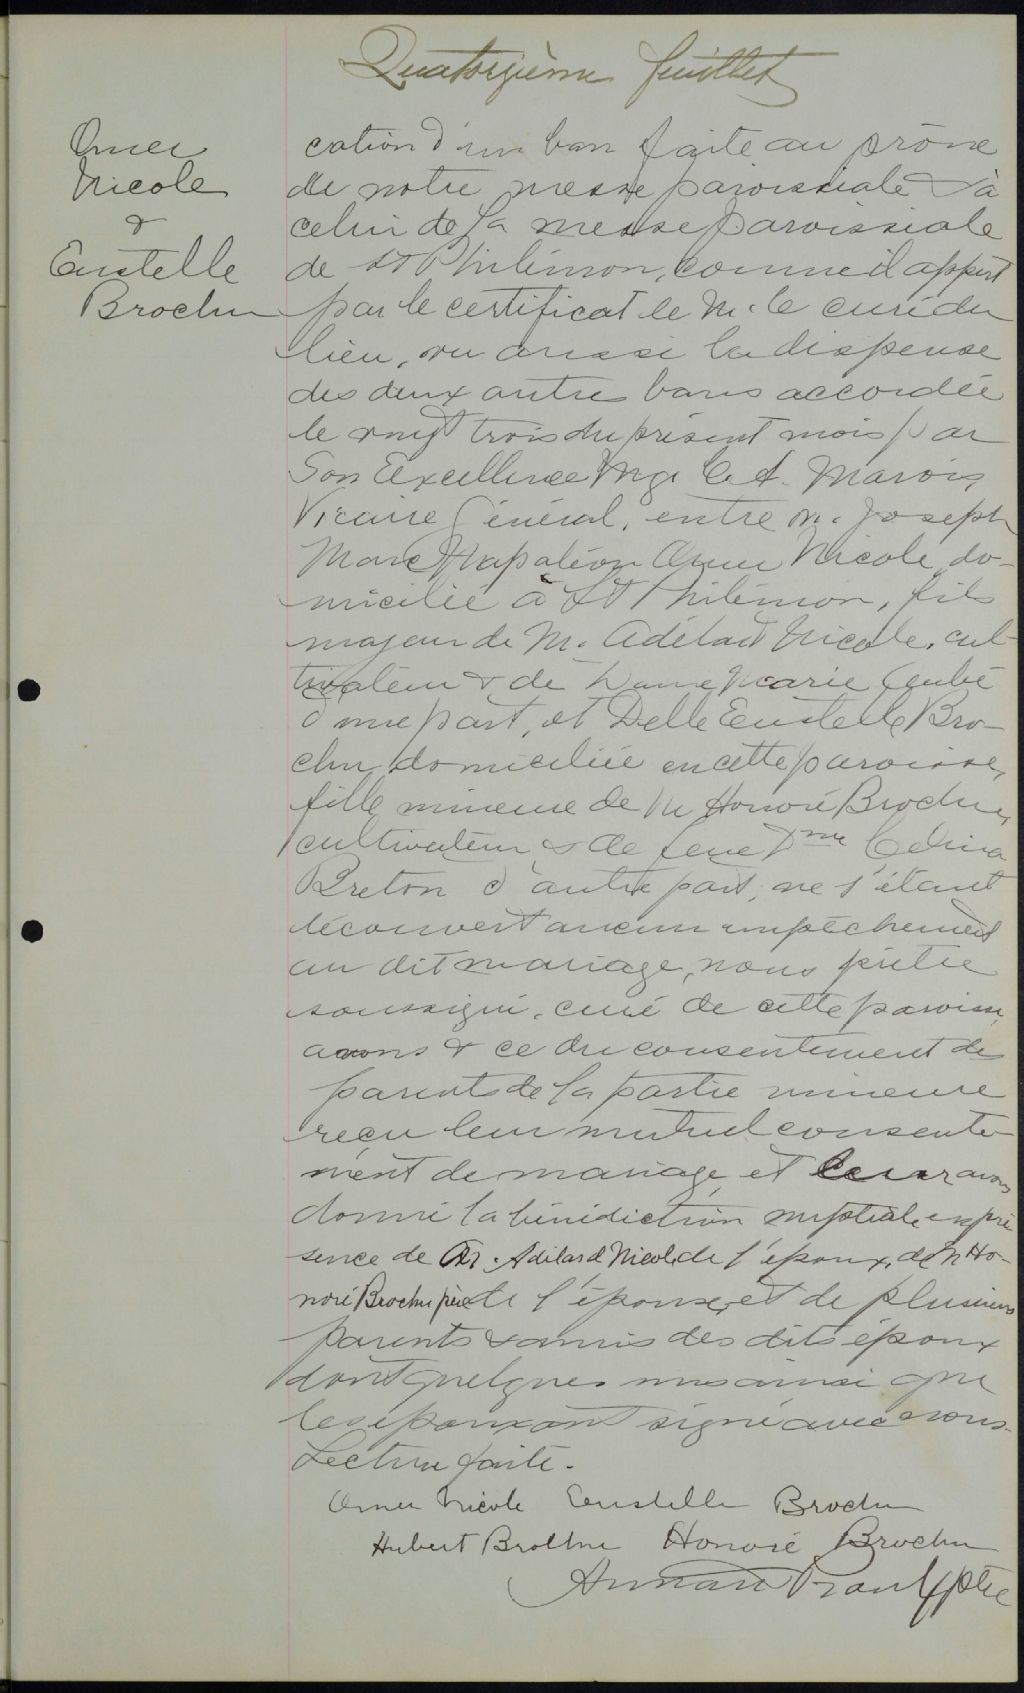 Quatorzième feuillet
Omer
Nicole
&
Eustelle
Brochu
cation d'un ban faite au prône
de notre messe paroissiale & à
celui de la messe paroissiale
de St Philémon, comme il appert
par le certificat de M. le curé du
lieu, vu aussi la dispense
des deux autres bans accordée
le vingt trois du présent mois par
Son Excellence Mgr C. A. Marois
Vicaire Général, entre M. Joseph
Marc Napoléon Omer Nicole, do-
micilié à St Philémon, fils
majeur de M. Adélard Nicole, cul-
tivateur & de Dame Marie Aubé
d'une part, et Delle Eustelle Bro-
chu domiciliée en cette paroisse,
fille mineure de M Honoré Brochu,
cultivateur & de feue Dme Célina
Breton d'autre part; ne s'étant
découvert aucun empêchement
au dit mariage, nous prêtre
soussigné, curé de cette paroisse,
avons & ce du consentement des
parents de la partie mineure
reçu leur mutuel consente-
ment de mariage et leur avons
donné la bénédiction nuptiale en pré
sence de Adélard Nicole de l'époux, de M Ho-
noré Brochu père de l'épouse, et de plusieurs
parents & amis des dits époux
dont quelques uns ainsi que
les époux ont signé avec nous.
Lecture faite.
Omer Nicole Eustelle Brochu
Hubert Brochu Honoré Brochu
Armand Proulx ptre